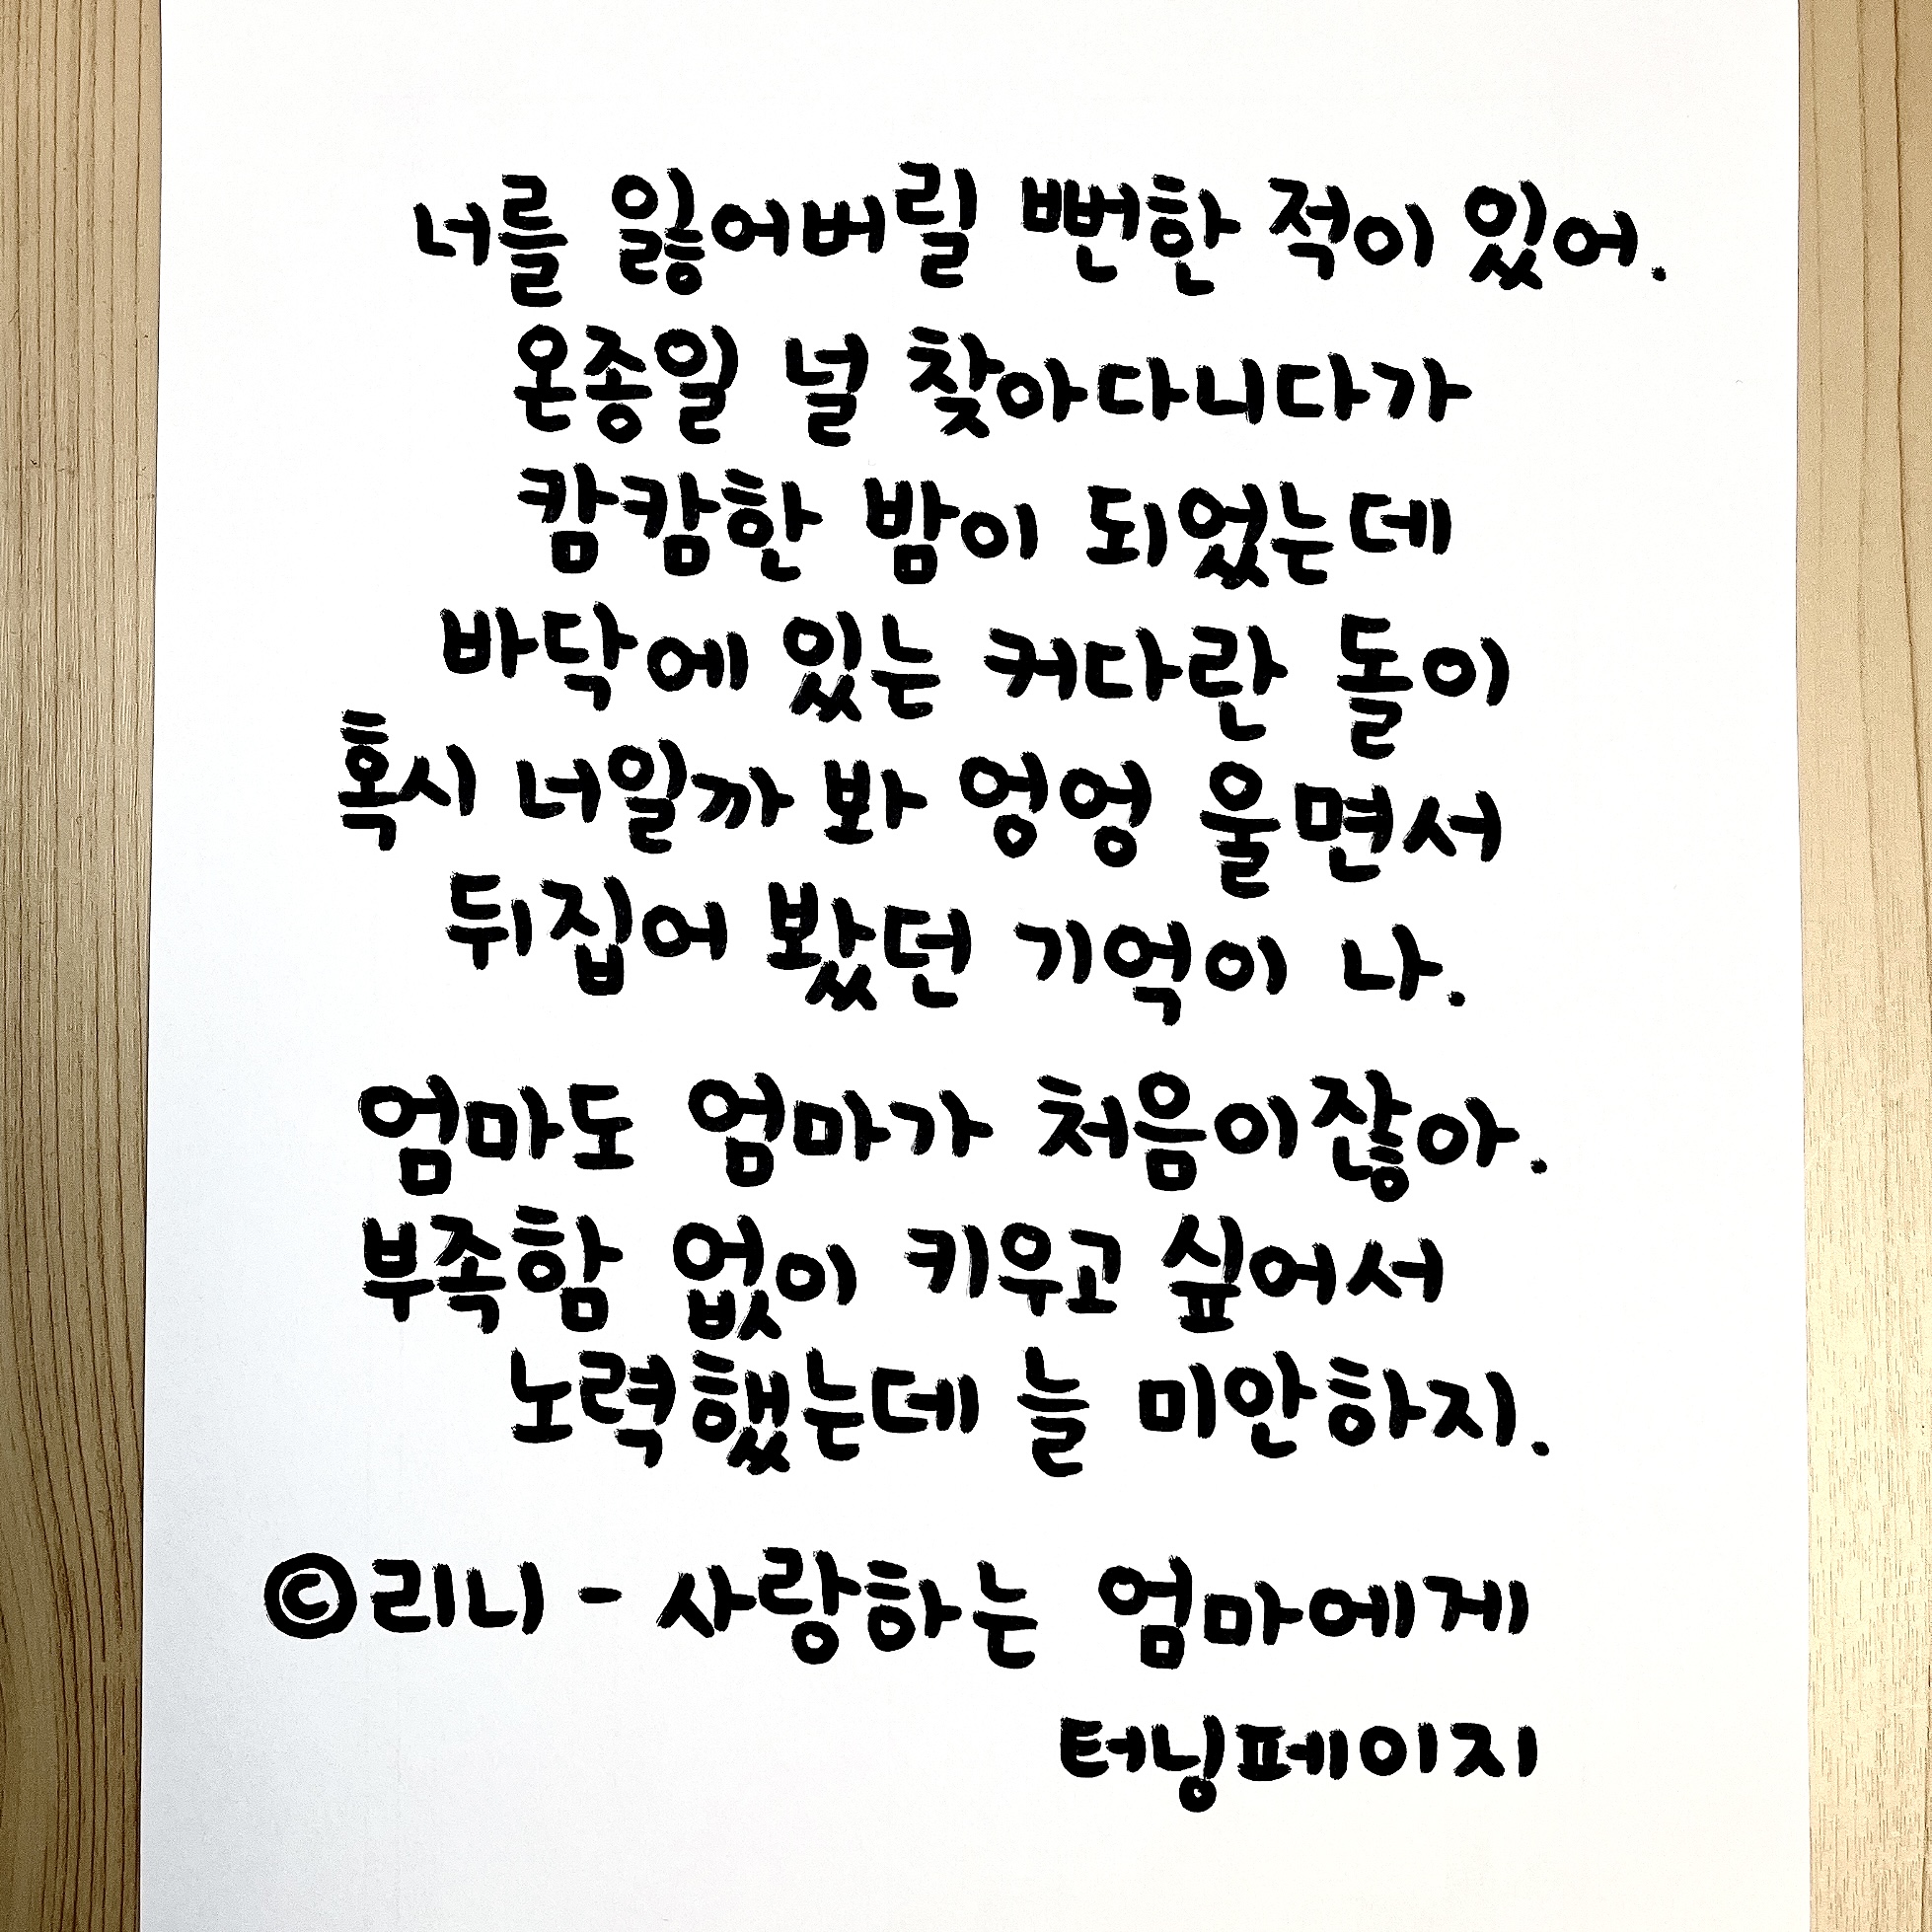 너를 잃어버릴 뻔한 적이 있어.
온종일 널 찾아다니다가
캄캄한 밤이 되었는데
바닥에 있는 커다란 돌이
혹시 너일까 봐 엉엉 울면서
뒤집어 봤던 기억이 나.
엄마도 엄마가 처음이잖아.
부족함 없이 키우고 싶어서
노력했는데 늘 미안하지.
©리니 - 사랑하는 엄마에게
터닝페이지